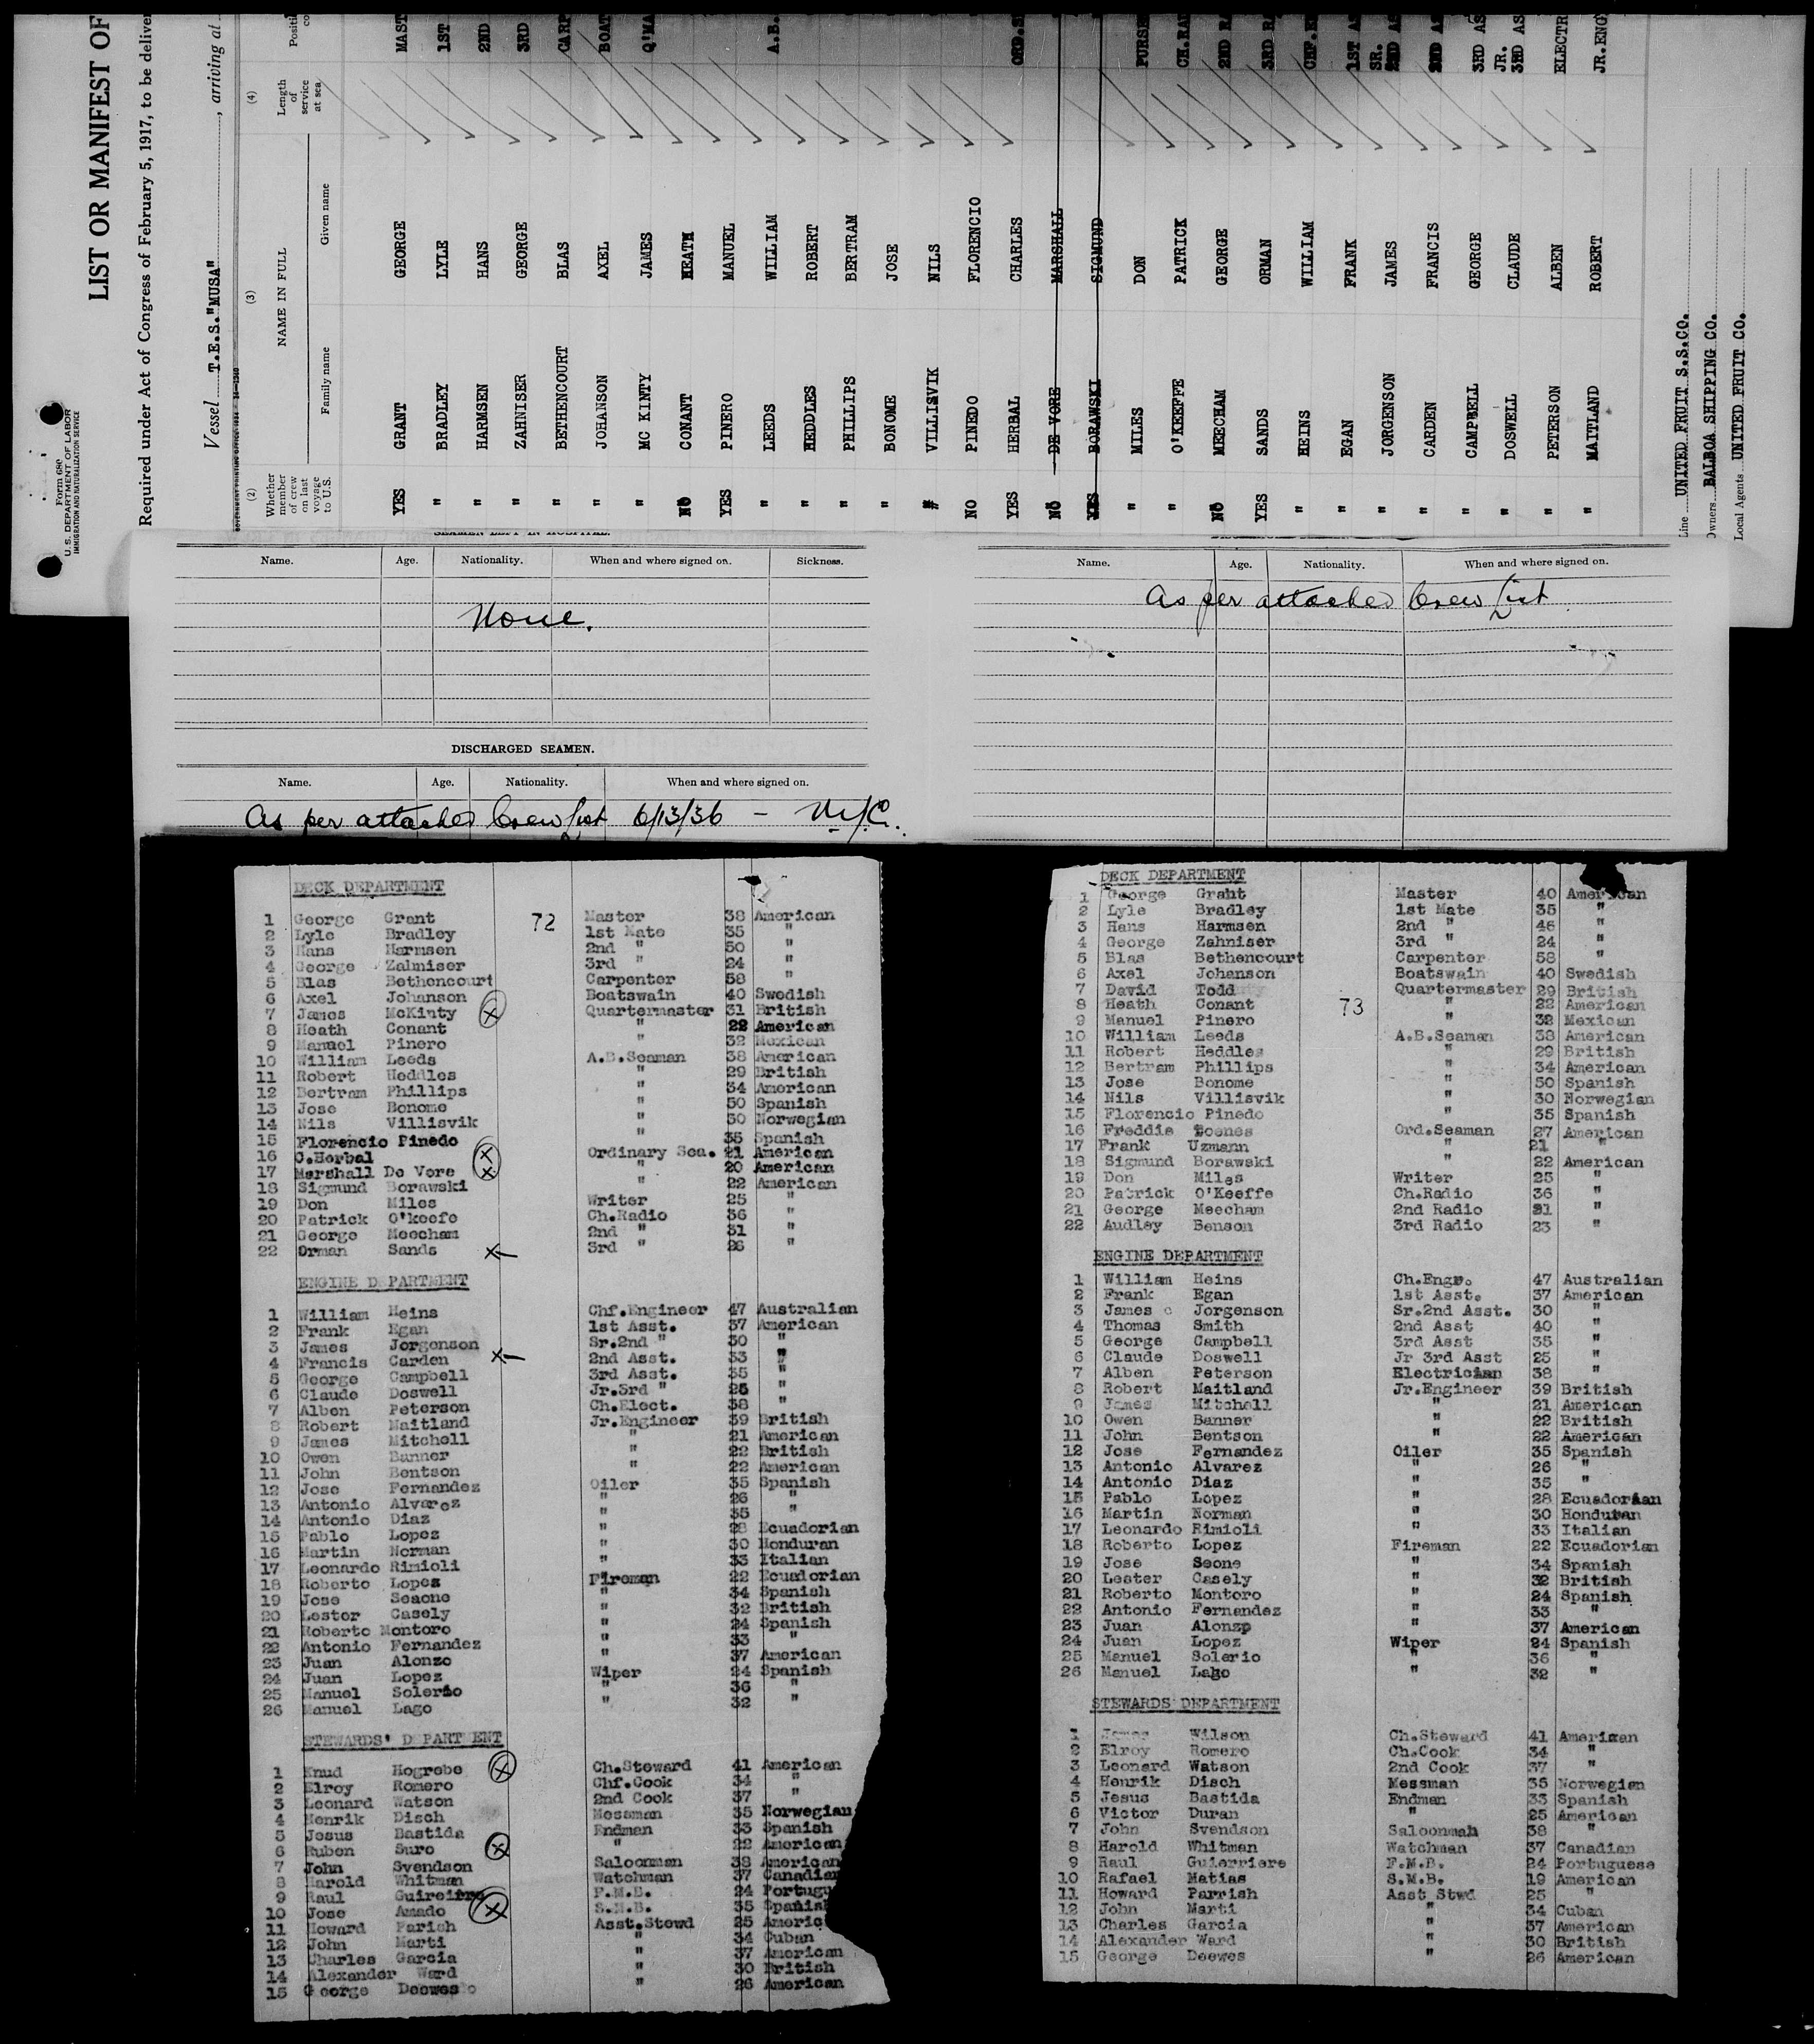 LIST OR MANIFEST OF
Required under Act of Congress of February 5, 1917, to be deliver
Vessel T.E.S."MUSA", arriving at
Form 680
U. S. DEPARTMENT OF LABOR
IMMIGRATION AND NATURALIZATION SERVICE
(2) (3) (4)
Whether member of crew on last voyage to U.S. NAME IN FULL Length of service at sea
Family name Given name
YES GRANT GEORGE MAST
" BRADLEY LYLE 1ST
" HARMSEN HANS 2ND
" ZAHNISER GEORGE 3RD
" BETHENCOURT BLAS CARP
" JOHANSON AXEL BOAT
" MC KINTY JAMES Q'MA
NO CONANT HEATH
YES PINERO MANUEL
" LEEDS WILLIAM A.B.
" HEDDLES ROBERT
" PHILLIPS BERTRAM
" BONOME JOSE
" VILLISVIK NILS
NO PINEDO FLORENCIO
YES HERBAL CHARLES ORD.S
NO DE VORE MARSHALL
YES BORAWSKI SIGMUND
" MILES DON PURSE
" O'KEEFFE PATRICK CH.RA
NO MEECHAM GEORGE 2ND R
YES SANDS ORMAN 3RD R
" HEINS WILLIAM CHF.E
" EGAN FRANK 1ST AS
" JORGENSON JAMES SR. 2ND AS
" CARDEN FRANCIS 2ND AS
" CAMPBELL GEORGE 3RD AS
" DOSWELL CLAUDE JR. 3RD AS
" PETERSON ALBEN ELECTR
" MAITLAND ROBERT JR.ENG
Line UNITED FRUIT S.S.CO.
Owners BALBOA SHIPPING CO.
Local Agents UNITED FRUIT CO.
SEAMEN LEFT IN HOSPITAL.
Name. Age. Nationality. When and where signed on. Sickness.
None.
DISCHARGED SEAMEN.
Name. Age. Nationality. When and where signed on.
As per attached Crew list 6/13/36 - N.Y.C.
Name. Age. Nationality. When and where signed on.
As per attached Crew list
DECK DEPARTMENT
72
1 George Grant Master 38 American
2 Lyle Bradley 1st Mate 35 "
3 Hans Harmsen 2nd " 50 "
4 George Zalmiser 3rd " 24 "
5 Blas Bethencourt Carpenter 58 "
6 Axel Johanson Boatswain 40 Swedish
7 James McKinty Quartermaster 31 British
8 Heath Conant " 22 American
9 Manuel Pinero " 32 Mexican
10 William Leeds A.B.Seaman 38 American
11 Robert Heddles " 29 British
12 Bertram Phillips " 34 American
13 Jose Bonome " 50 Spanish
14 Nils Villisvik " 30 Norwegian
15 Florencio Pinedo " 35 Spanish
16 C.Herbal Ordinary Sea. 21 American
17 Marshall De Vore " 20 American
18 Sigmund Borawski " 22 American
19 Don Miles Writer 25 "
20 Patrick O'keefe Ch.Radio 36 "
21 George Meecham 2nd " 31 "
22 Orman Sands 3rd " 26 "
ENGINE DEPARTMENT
1 William Heins Chf.Engineer 47 Australian
2 Frank Egan 1st Asst. 37 American
3 James Jorgenson Sr.2nd " 30 "
4 Francis Carden 2nd Asst. 33 "
5 George Campbell 3rd Asst. 35 "
6 Claude Doswell Jr.3rd " 25 "
7 Alben Peterson Ch.Elect. 38 "
8 Robert Maitland Jr.Engineer 39 British
9 James Mitchell " 21 American
10 Owen Banner " 22 British
11 John Bentson " 22 American
12 Jose Fernandez Oiler 35 Spanish
13 Antonio Alvarez " 26 "
14 Antonio Diaz " 35 "
15 Pablo Lopez " 28 Ecuadorian
16 Martin Norman " 30 Honduran
17 Leonardo Rimioli " 33 Italian
18 Roberto Lopez Fireman 22 Ecuadorian
19 Jose Seaone " 34 Spanish
20 Lester Casely " 32 British
21 Roberto Montoro " 24 Spanish
22 Antonio Fernandez " 33 "
23 Juan Alonzo " 37 American
24 Juan Lopez Wiper 24 Spanish
25 Manuel Solerio " 36 "
26 Manuel Lago " 32 "
STEWARDS' DEPARTMENT
1 Knud Hogrebe Ch.Steward 41 American
2 Elroy Romero Chf.Cook 34 "
3 Leonard Watson 2nd Cook 37 "
4 Henrik Disch Messman 35 Norwegian
5 Jesus Bastida Endman 33 Spanish
6 Ruben Suro " 22 American
7 John Svendson Saloonman 38 American
8 Harold Whitman Watchman 37 Canadian
9 Raul F.M.B. 24 Portugu
10 Jose Amado S.M.B. 35 Spanish
11 Howard Parish Asst.Stewd 25 Americ
12 John Marti " 34 Cuban
13 Charles Garcia " 37 American
14 Alexander Ward " 30 British
15 George Deewes " 26 American
DECK DEPARTMENT
73
1 George Grant Master 40 American
2 Lyle Bradley 1st Mate 35 "
3 Hans Harmsen 2nd " 46 "
4 George Zahniser 3rd " 24 "
5 Blas Bethencourt Carpenter 58 "
6 Axel Johanson Boatswain 40 Swedish
7 David Todd Quartermaster 29 British
8 Heath Conant " 22 American
9 Manuel Pinero " 32 Mexican
10 William Leeds A.B.Seaman 38 American
11 Robert Heddles " 29 British
12 Bertram Phillips " 34 American
13 Jose Bonome " 50 Spanish
14 Nils Villisvik " 30 Norwegian
15 Florencio Pinedo " 35 Spanish
16 Freddie Boenes Ord.Seaman 27 American
17 Frank Uzmann " 21 "
18 Sigmund Borawski " 22 American
19 Don Miles Writer 25 "
20 Patrick O'Keeffe Ch.Radio 36 "
21 George Meecham 2nd Radio 31 "
22 Audley Benson 3rd Radio 23 "
ENGINE DEPARTMENT
1 William Heins Ch.Engr. 47 Australian
2 Frank Egan 1st Asst. 37 American
3 James c Jorgenson Sr.2nd Asst. 30 "
4 Thomas Smith 2nd Asst 40 "
5 George Campbell 3rd Asst 35 "
6 Claude Doswell Jr 3rd Asst 25 "
7 Alben Peterson Electrician 38 "
8 Robert Maitland Jr.Engineer 39 British
9 James Mitchell " 21 American
10 Owen Banner " 22 British
11 John Bentson " 22 American
12 Jose Fernandez Oiler 35 Spanish
13 Antonio Alvarez " 26 "
14 Antonio Diaz " 35 "
15 Pablo Lopez " 28 Ecuadorian
16 Martin Norman " 30 Honduran
17 Leonardo Rimioli " 33 Italian
18 Roberto Lopez Fireman 22 Ecuadorian
19 Jose Seone " 34 Spanish
20 Lester Casely " 32 British
21 Roberto Montoro " 24 Spanish
22 Antonio Fernandez " 33 "
23 Juan Alonzo " 37 American
24 Juan Lopez Wiper 24 Spanish
25 Manuel Solerio " 36 "
26 Manuel Lago " 32 "
STEWARDS DEPARTMENT
1 James Wilson Ch.Steward 41 American
2 Elroy Romero Ch.Cook 34 "
3 Leonard Watson 2nd Cook 37 "
4 Henrik Disch Messman 35 Norwegian
5 Jesus Bastida Endman 33 Spanish
6 Victor Duran " 25 American
7 John Svendson Saloonman 38 "
8 Harold Whitman Watchman 37 Canadian
9 Raul Guierriere F.M.B. 24 Portuguese
10 Rafael Matias S.M.B. 19 American
11 Howard Parrish Asst Stwd 25 "
12 John Marti " 34 Cuban
13 Charles Garcia " 37 American
14 Alexander Ward " 30 British
15 George Deewes " 26 American